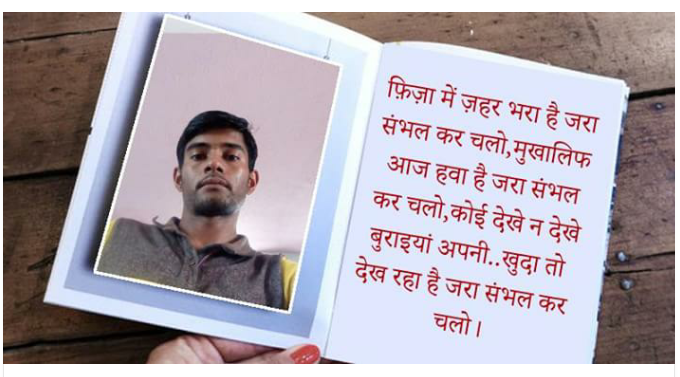 फ़िज़ा में ज़हर भरा है जरा
संभल कर चलो,मुखालिफ
आज हवा है जरा संभल
कर चलो,कोई देखे न देखे
बुराइयां अपनी..खुदा तो
देख रहा है जरा संभल कर
चलो।